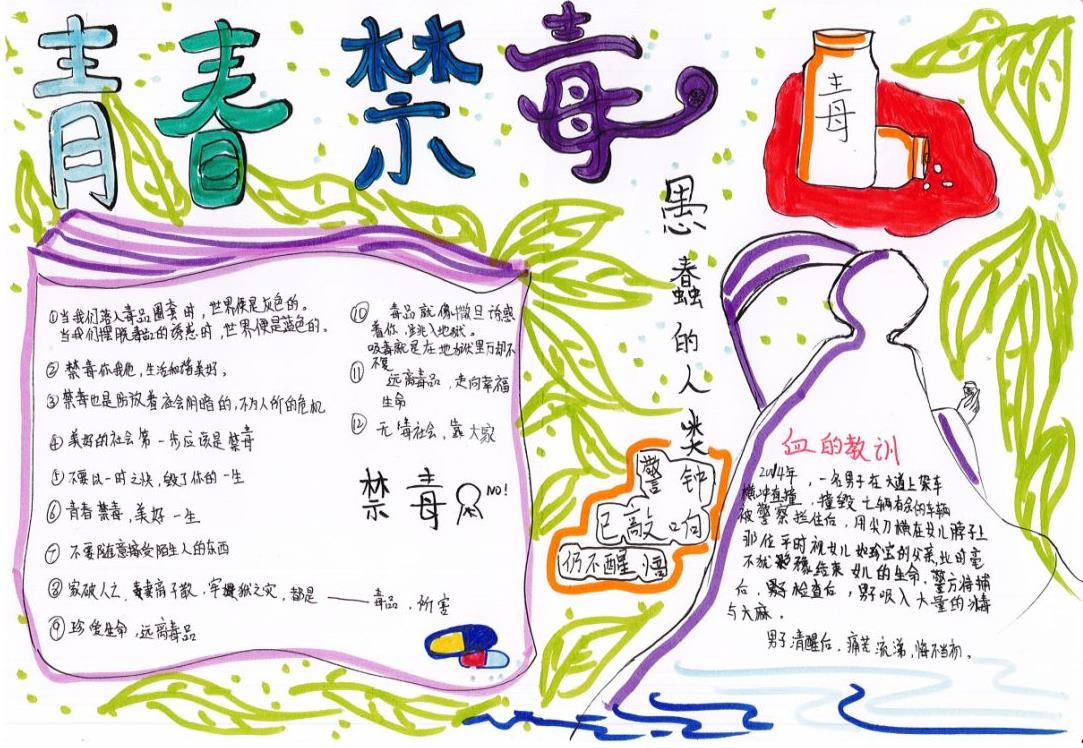 青春禁毒
毒
愚蠢的人类
①当我们落入毒品圈套时，世界便是灰色的。
当我们摆脱毒品的诱惑时，世界便是蓝色的。
②禁毒你我他，生活和谐美好。
③禁毒也是防放着社会阴暗的，不为人所的危机
④美好的社会第一步应该是禁毒
⑤不要以一时之快，毁了你的一生
⑥青春禁毒，美好一生
⑦不要随意接受陌生人的东西
⑧家破人亡，妻离子散，牢狱之灾，都是——毒品，所害
⑨珍爱生命，远离毒品
⑩毒品就像撒旦诱惑
着你，跳入地狱。
吸毒就是在地狱里万劫不
复
⑪远离毒品，走向幸福
生命
⑫无毒社会，靠大家
禁毒
NO!
警钟
已敲响
仍不醒悟
血的教训
2014年，一名男子在大道上驾车
横冲直撞，撞毁七辆有余的车辆
被警察拦住后，用尖刀横在女儿脖子上
那位平时视女儿如珍宝的父亲，此时毫
不犹豫结束女儿的生命，警方将捕
后，检查后，男子吸入大量的冰毒
与大麻。
男子清醒后，痛苦流涕，悔不当初。